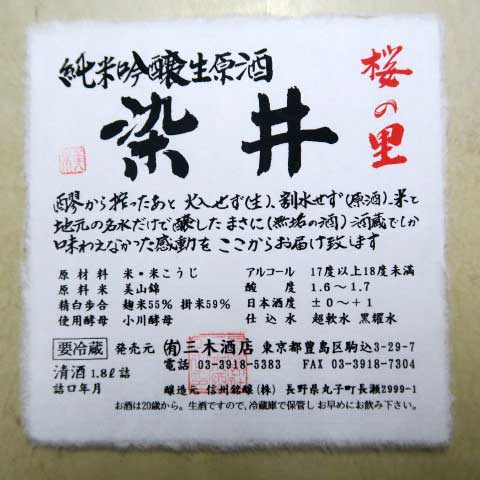 純米吟醸生原酒
桜の里
染井
醪から搾ったあと火入せず(生)、割水せず(原酒)、米と
地元の名水だけで醸したまさに(無垢の酒)酒蔵でしか
味わえなかった感動をここからお届け致します
原材料 米・米こうじ アルコール 17度以上18度未満
原料米 美山錦 酸度 1.6〜1.7
精白歩合 麹米55% 掛米59% 日本酒度 ±0〜+1
使用酵母 小川酵母 仕込水 超軟水 黒耀水
要冷蔵 発売元 (有)三木酒店 東京都豊島区駒込3-29-7
電話 03-3918-5383 FAX 03-3918-7304
清酒 1.8ℓ詰
詰口年月 醸造元 信州銘醸(株) 長野県丸子町長瀬2999-1
お酒は20歳から。生酒ですので、冷蔵庫で保管しお早めにお飲み下さい。